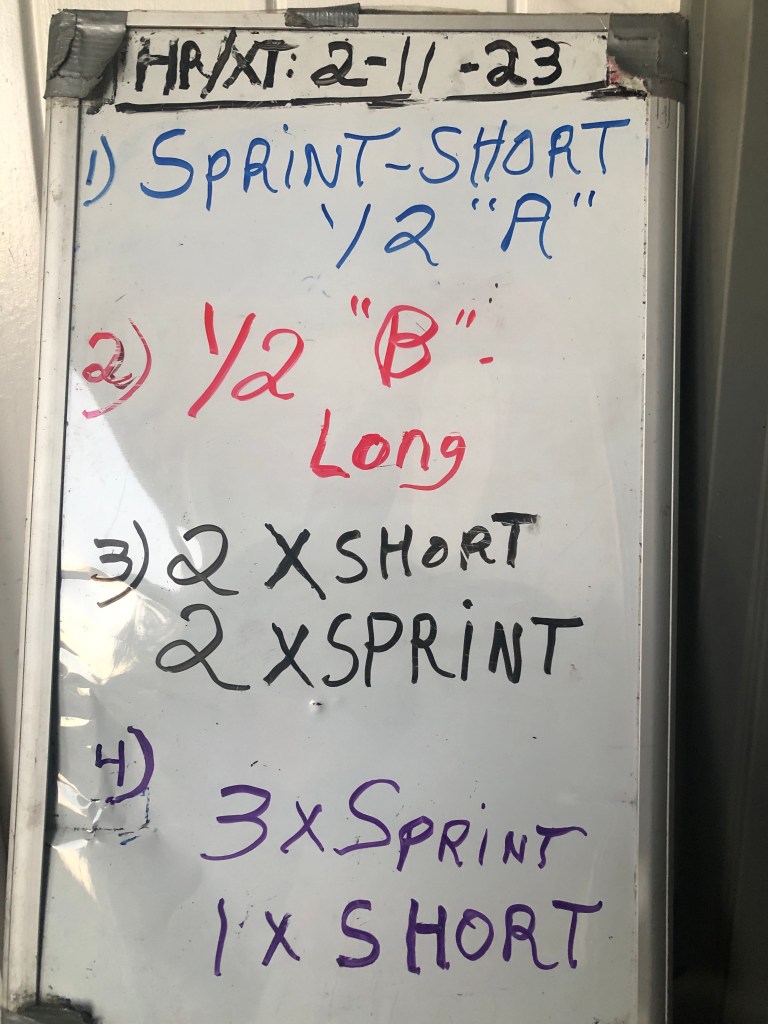 HR/XT: 2-11-23
1) SPRiNT-SHORT
1/2 "A"
2) 1/2 "B".
Long
3) 2 X SHORT
2 X SPRiNT
4)
3 X SPRiNT
1 X SHORT